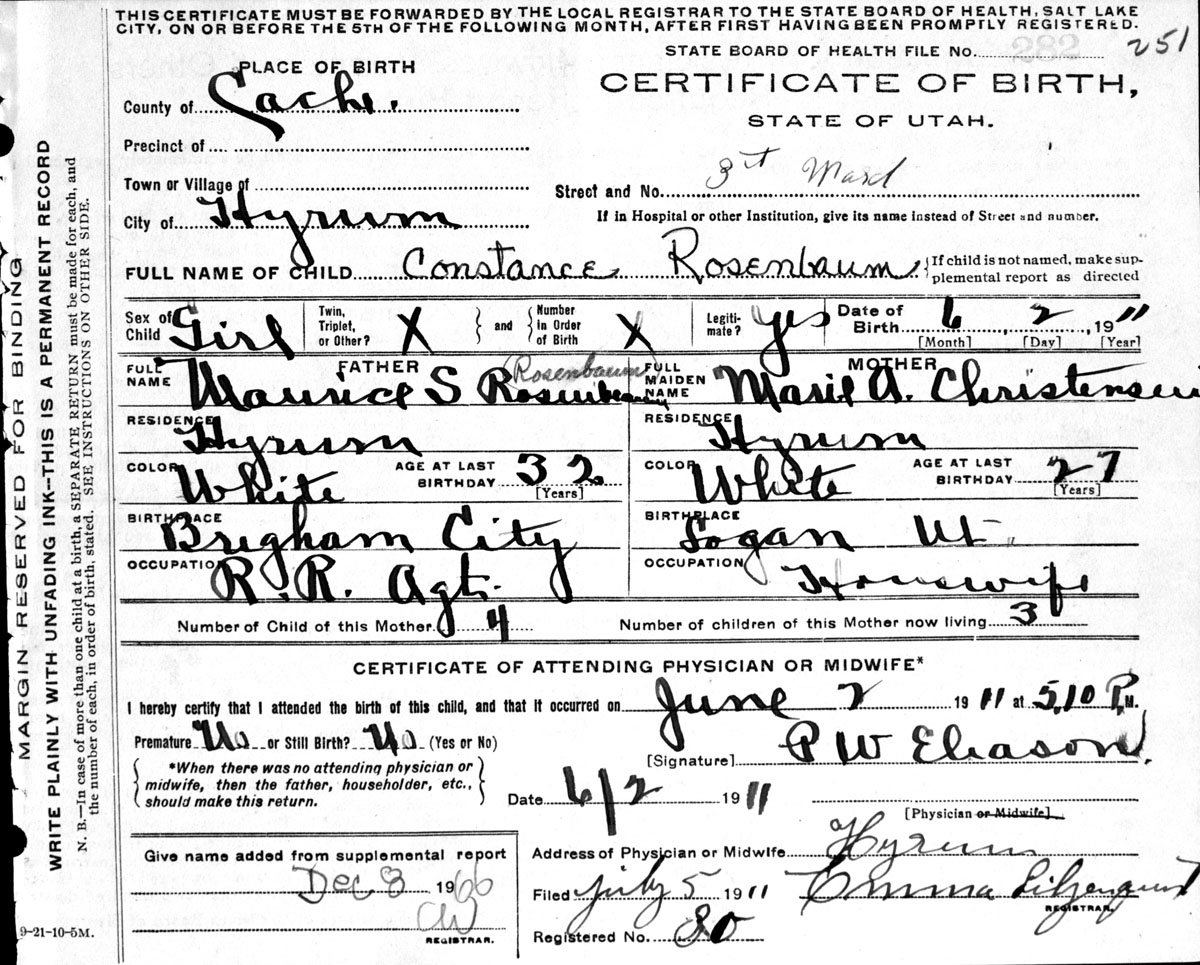 THIS CERTIFICATE MUST BE FORWARDED BY THE LOCAL REGISTRAR TO THE STATE BOARD OF HEALTH, SALT LAKE
CITY, ON OR BEFORE THE 5TH OF THE FOLLOWING MONTH, AFTER FIRST HAVING BEEN PROMPTLY REGISTERED.
STATE BOARD OF HEALTH FILE No. 251
PLACE OF BIRTH
CERTIFICATE OF BIRTH,
STATE OF UTAH.
County of Cache.
Precinct of
Town or Village of
Street and No. 3rd Ward
City of Hyrum
If in Hospital or other Institution, give its name instead of Street and number.
FULL NAME OF CHILD Constance Rosenbaum {If child is not named, make sup-
plemental report as directed
Sex of Child Girl Twin, Triplet, or Other? X { and } Number in Order of Birth X Legiti- mate? Yes Date of Birth 6, 2, 1911
[Month] [Day] [Year]
FATHER MOTHER
FULL NAME Maurice S Rosenbaum Rosenbaum FULL MAIDEN NAME Marie A. Christensen
RESIDENCE Hyrum RESIDENCE Hyrum
COLOR White AGE AT LAST BIRTHDAY 32 [Years] COLOR White AGE AT LAST BIRTHDAY 27 [Years]
BIRTHPLACE Brigham City BIRTHPLACE Logan Ut
OCCUPATION R.R. Agt. OCCUPATION Housewife
Number of Child of this Mother 4 Number of children of this Mother now living 3
CERTIFICATE OF ATTENDING PHYSICIAN OR MIDWIFE*
I hereby certify that I attended the birth of this child, and that it occurred on June 2 1911 at 5,10 P.M.
Premature No or Still Birth? No (Yes or No)
[Signature] P W Eliason
{ *When there was no attending physician or
midwife, then the father, householder, etc.,
should make this return. }
Date 6/2 1911
[Physician or Midwife]
Give name added from supplemental report
Dec 8 1966
CW
REGISTRAR.
Address of Physician or Midwife Hyrum
Filed July 5 1911 Emma Liljenquist
REGISTRAR.
Registered No. 30
9-21-10-5M.
MARGIN RESERVED FOR BINDING
WRITE PLAINLY WITH UNFADING INK—THIS IS A PERMANENT RECORD
N. B.—In case of more than one child at a birth, a SEPARATE RETURN must be made for each, and
the number of each, in order of birth, stated. SEE INSTRUCTIONS ON OTHER SIDE.